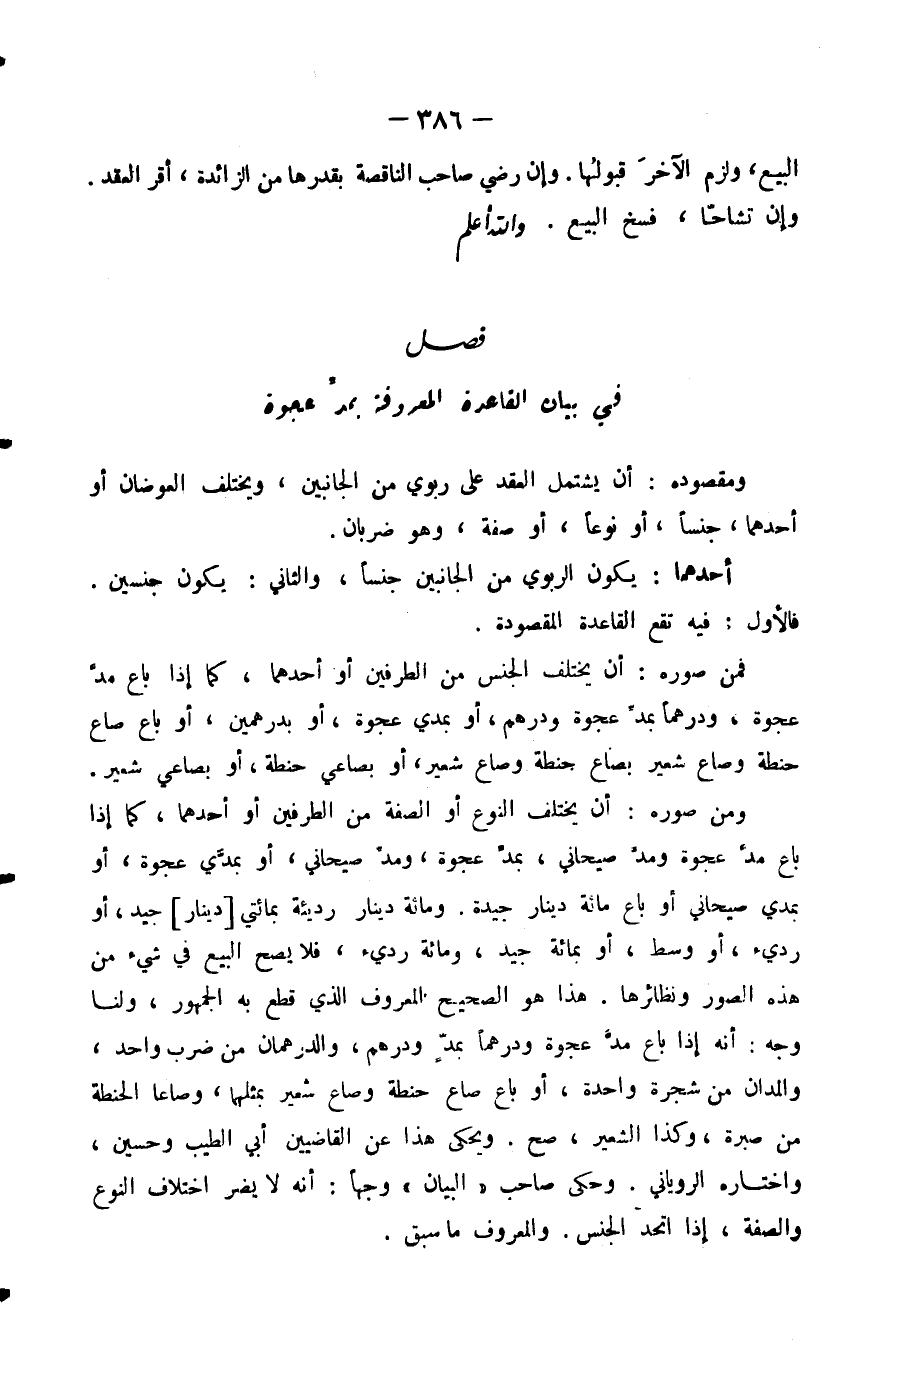 — ٣٨٦ —
البيع، ولزم الآخرَ قبولُها. وإن رضي صاحب الناقصة بقدرها من الزائدة ، أقر العقد .
وإن تشاحّا ، فسخ البيع . والله أعلم
فصل
في بيان القاعدة المعروفة بمدِّ عجوة
ومقصوده : أن يشتمل العقد على ربوي من الجانبين ، ويختلف العوضان أو
أحدهما ، جنساً ، أو نوعاً ، أو صفة ، وهو ضربان .
أحدهما : يكون الربوي من الجانبين جنساً ، والثاني : يكون جنسين .
فالأول : فيه تقع القاعدة المقصودة .
فمن صوره : أن يختلف الجنس من الطرفين أو أحدهما ، كما إذا باع مدَّ
عجوة ، ودرهماً بمدِّ عجوة ودرهم ، أو بمدي عجوة ، أو بدرهمين ، أو باع صاع
حنطة وصاع شعير بصاع حنطة وصاع شعير ، أو بصاعي حنطة ، أو بصاعي شعير .
ومن صوره : أن يختلف النوع أو الصفة من الطرفين أو أحدهما ، كما إذا
باع مدَّ عجوة ومدَّ صيحاني ، بمدِّ عجوة ، ومدِّ صيحاني ، أو بمدَّي عجوة ، أو
بمدي صيحاني أو باع مائة دينار جيدة . ومائة دينار رديئة بمائتي [دينار] جيد ، أو
رديء ، أو وسط ، أو بمائة جيد ، ومائة رديء ، فلا يصح البيع في شيء من
هذه الصور ونظائرها . هذا هو الصحيح المعروف الذي قطع به الجمهور ، ولنـا
وجه : أنه إذا باع مدَّ عجوة ودرهماً بمدٍّ ودرهم ، والدرهمان من ضرب واحد ،
والمدان من شجرة واحدة ، أو باع صاع حنطة وصاع شعير بمثلها ، وصاعا الحنطة
من صبرة ، وكذا الشعير ، صح . ويحكى هذا عن القاضيين أبي الطيب وحسين ،
واختـاره الروياني . وحكى صاحب « البيان » وجهاً : أنه لا يضر اختلاف النوع
والصفة ، إذا اتحد الجنس . والمعروف ما سبق .